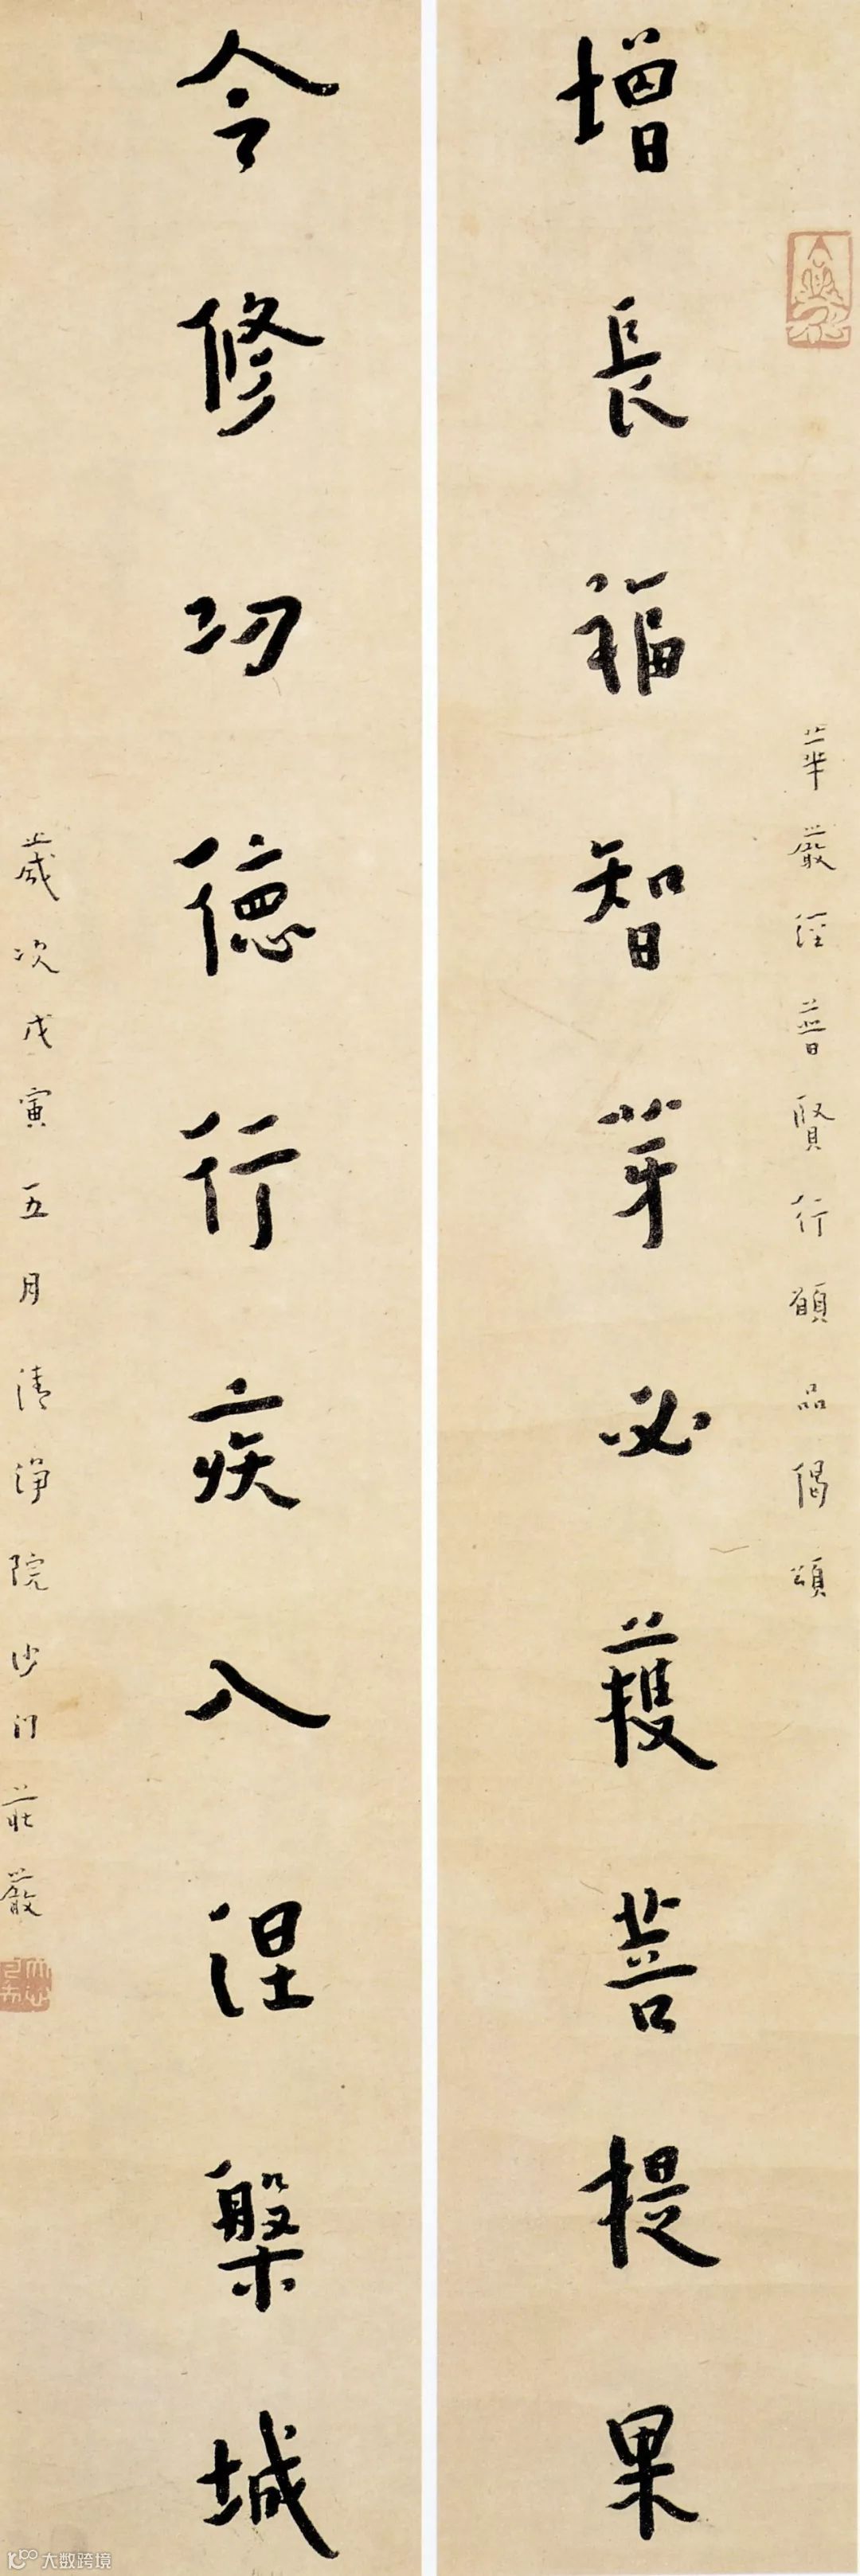 華嚴經普賢行願品偈頌
增長福智芽必獲菩提果
令修功德行疾入涅槃城
歲次戊寅五月清淨院沙門莊嚴
大数跨境